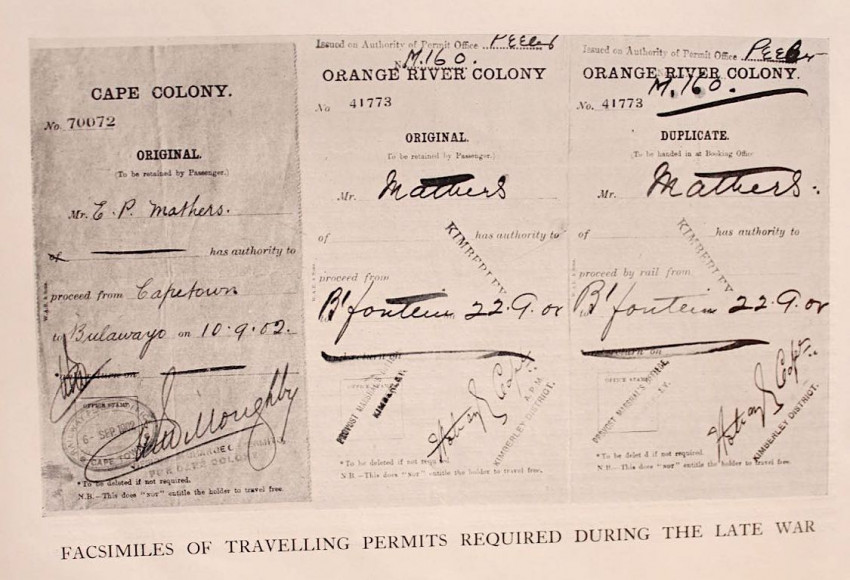 CAPE COLONY.
No. 70072
ORIGINAL.
(To be retained by Passenger.)
Mr. E. P. Mathers.
of has authority to
proceed from Capetown
to Bulawayo on 10.9.02.
return on
OFFICE STAMP.
6 - SEP 1902
CAPE TOWN
Willoughby
FOR CAPE COLONY
*To be deleted if not required.
N.B.—This does "NOT" entitle the holder to travel free.
Issued on Authority of Permit Office
M.160.
ORANGE RIVER COLONY
No 41773
ORIGINAL.
(To be retained by Passenger.)
Mr. Mathers
KIMBERLEY
of has authority to
proceed from
B'fontein 22.9.02
return on
PROVOST MARSHAL'S
KIMBERLEY
Capt
A.P.M.
KIMBERLEY DISTRICT.
*To be deleted if not required.
N.B.—This does "NOT" entitle the holder to travel free.
Issued on Authority of Permit Office
ORANGE RIVER COLONY.
M.160.
No. 41773
DUPLICATE.
(To be handed in at Booking Office
Mr. Mathers.
KIMBERLEY
of has authority to
proceed by rail from
B'fontein 22.9.02
return on
OFFICE STAMP
PROVOST MARSHAL'S
Capt
KIMBERLEY DISTRICT.
*To be deleted if not required.
N.B.—This does "NOT" entitle the holder to travel free.
FACSIMILES OF TRAVELLING PERMITS REQUIRED DURING THE LATE WAR